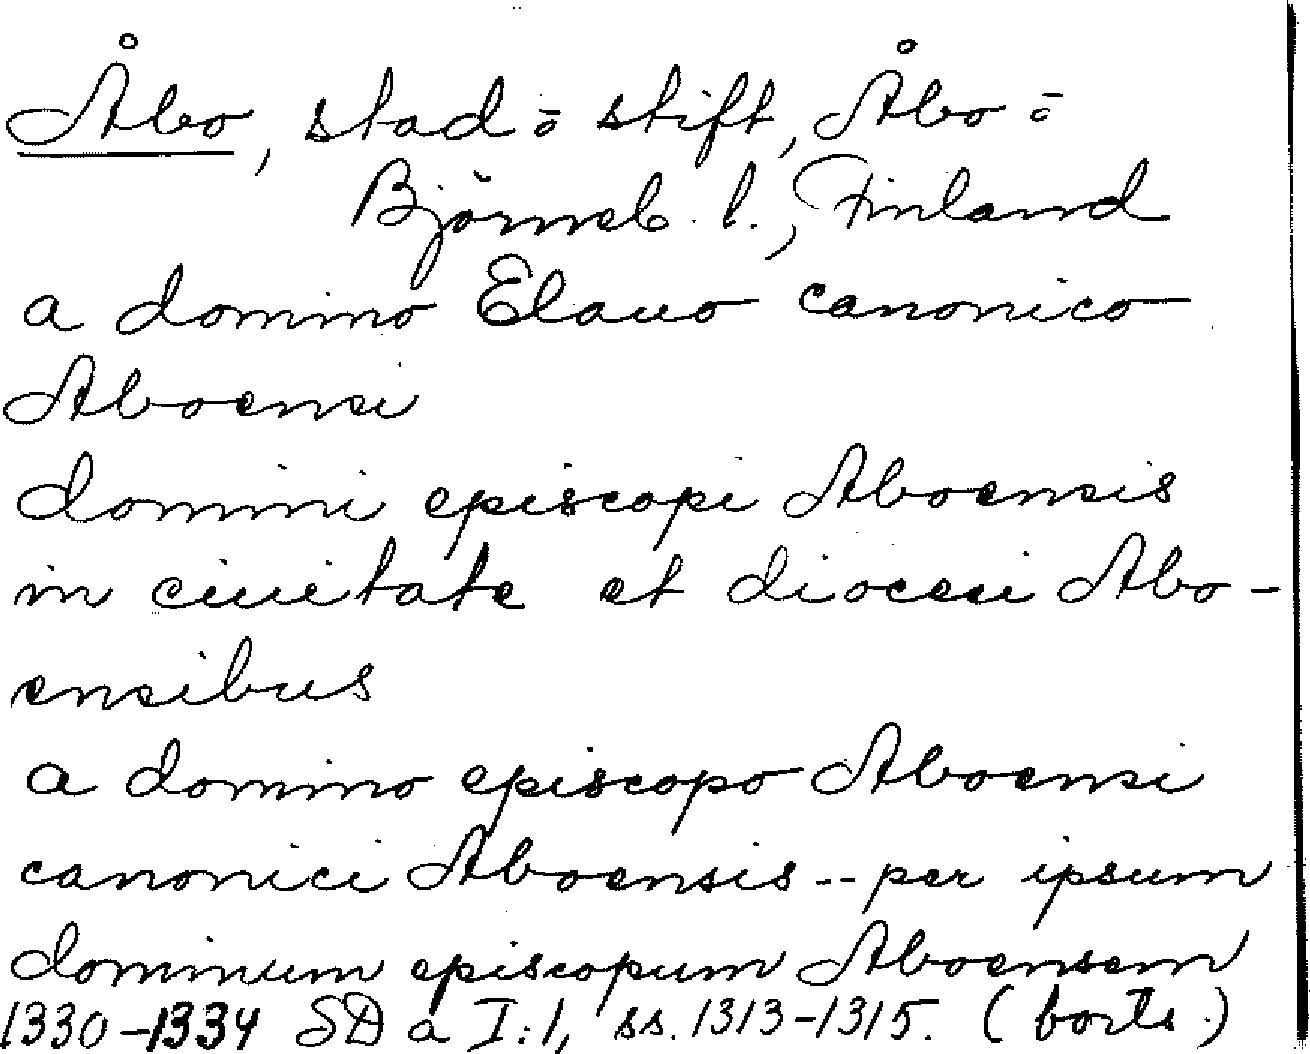 Åbo, stad o. stift, Åbo o.
Björneb. l., Finland
a domino Elauo canonico
Aboensi
domini episcopi Aboensis
in ciuitate et diocesi Abo-
ensibus
a domino episcopo Aboensi
canonici Aboensis -- per ipsum
dominum episcopum Aboensem
1330-1334 SD a I:1, ss. 1313-1315. (forts.)